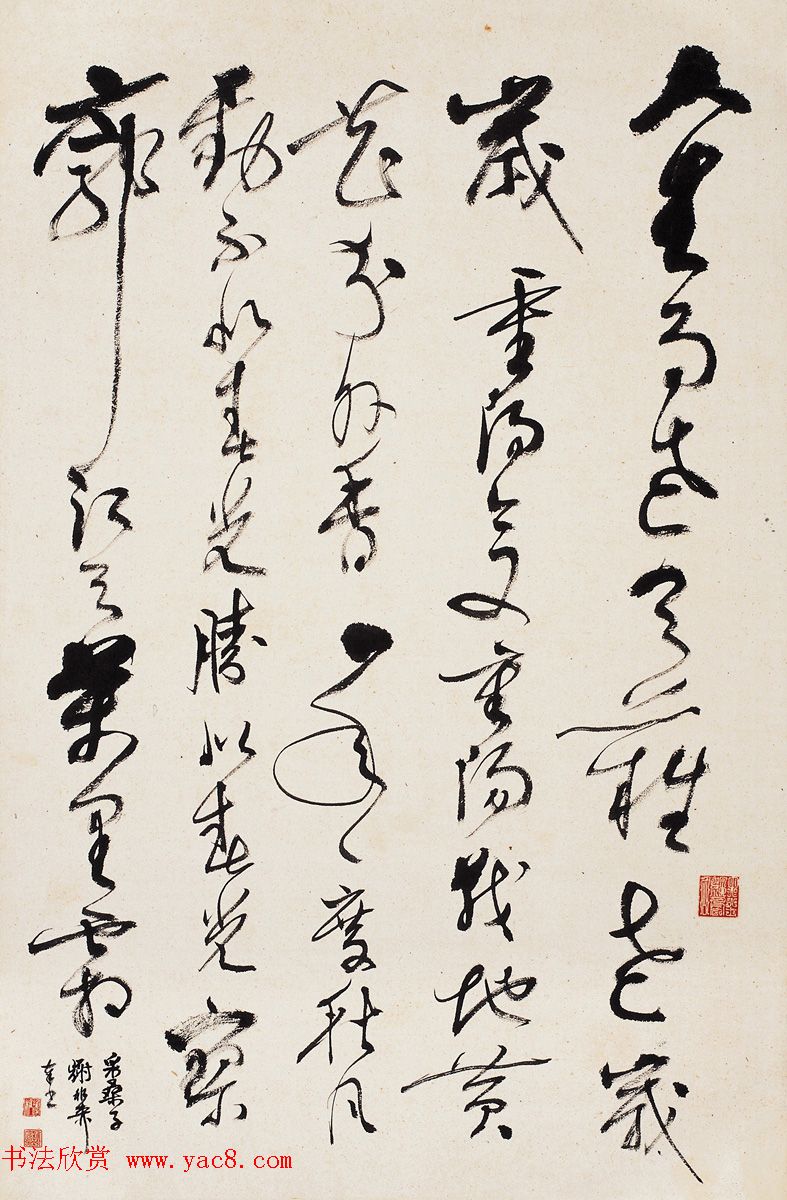 人生易老天難老歲
歲重陽今又重陽戰地黃
花分外香一年一度秋風
勁不似春光勝似春光寥
廓江天萬里霜
采桑子
书法欣赏 www.yac8.com